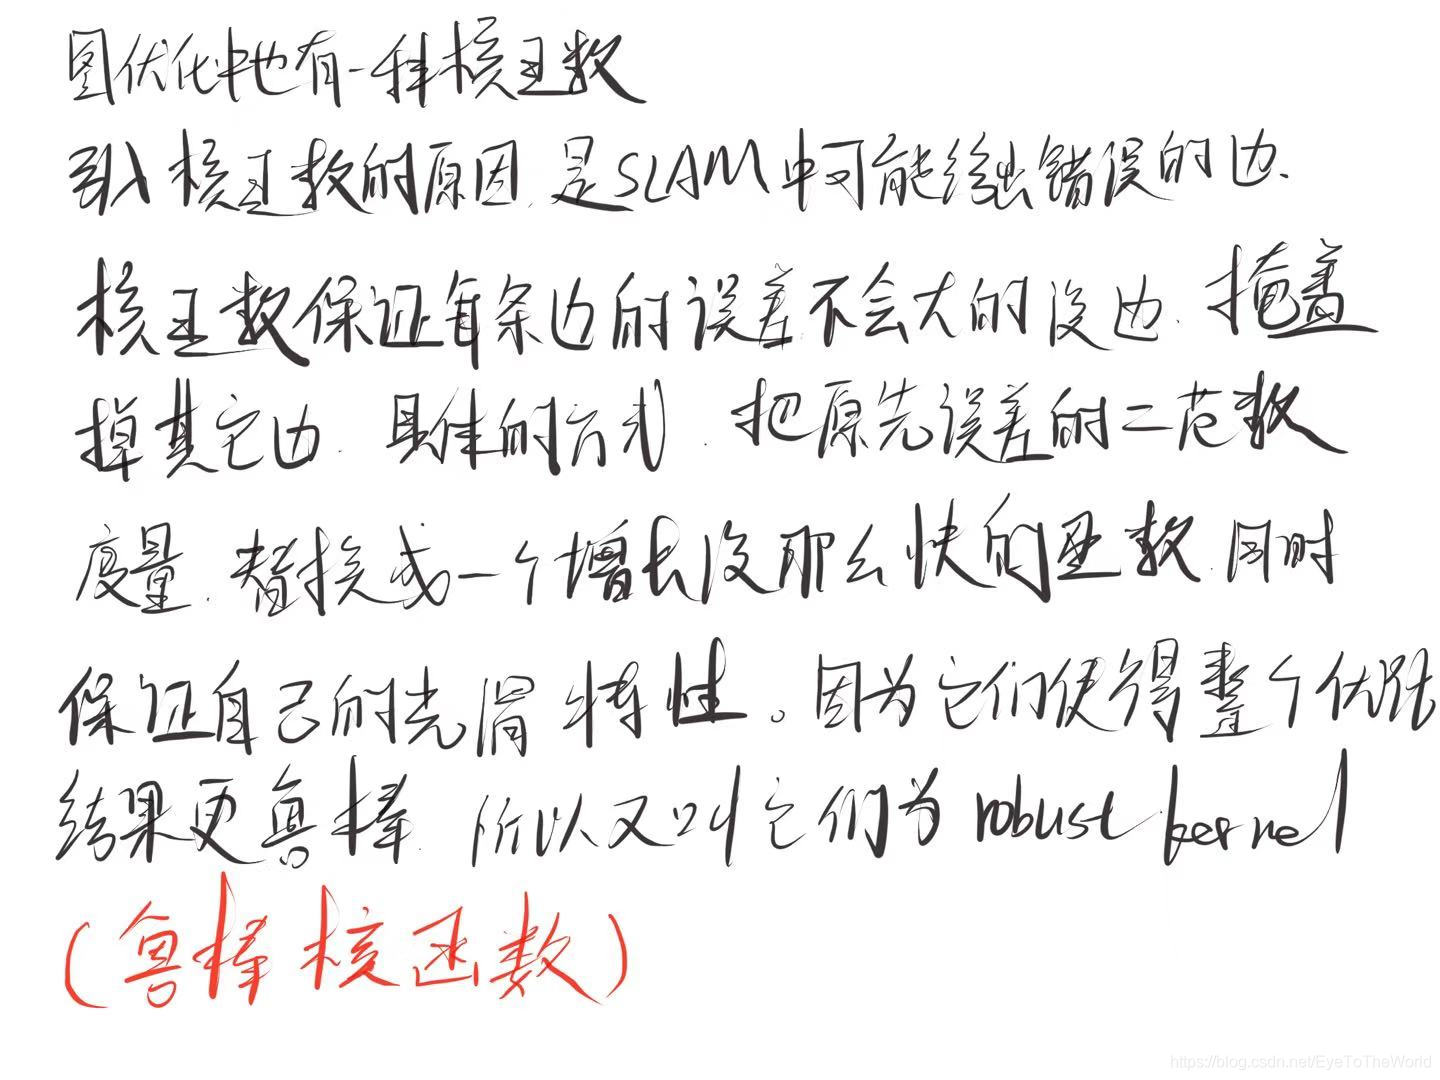 图优化中也有一种核函数
引入核函数的原因,是SLAM中可能给出错误的边.
核函数保证每条边的误差不会大的没边.掩盖
掉其它边.具体的方式.把原先误差的二范数
度量.替换成一个增长没那么快的函数.同时
保证自己的光滑特性。因为它们使得整个优化
结果更鲁棒.所以又叫它们为robust kernel
(鲁棒核函数)
https://blog.csdn.net/EyeToTheWorld